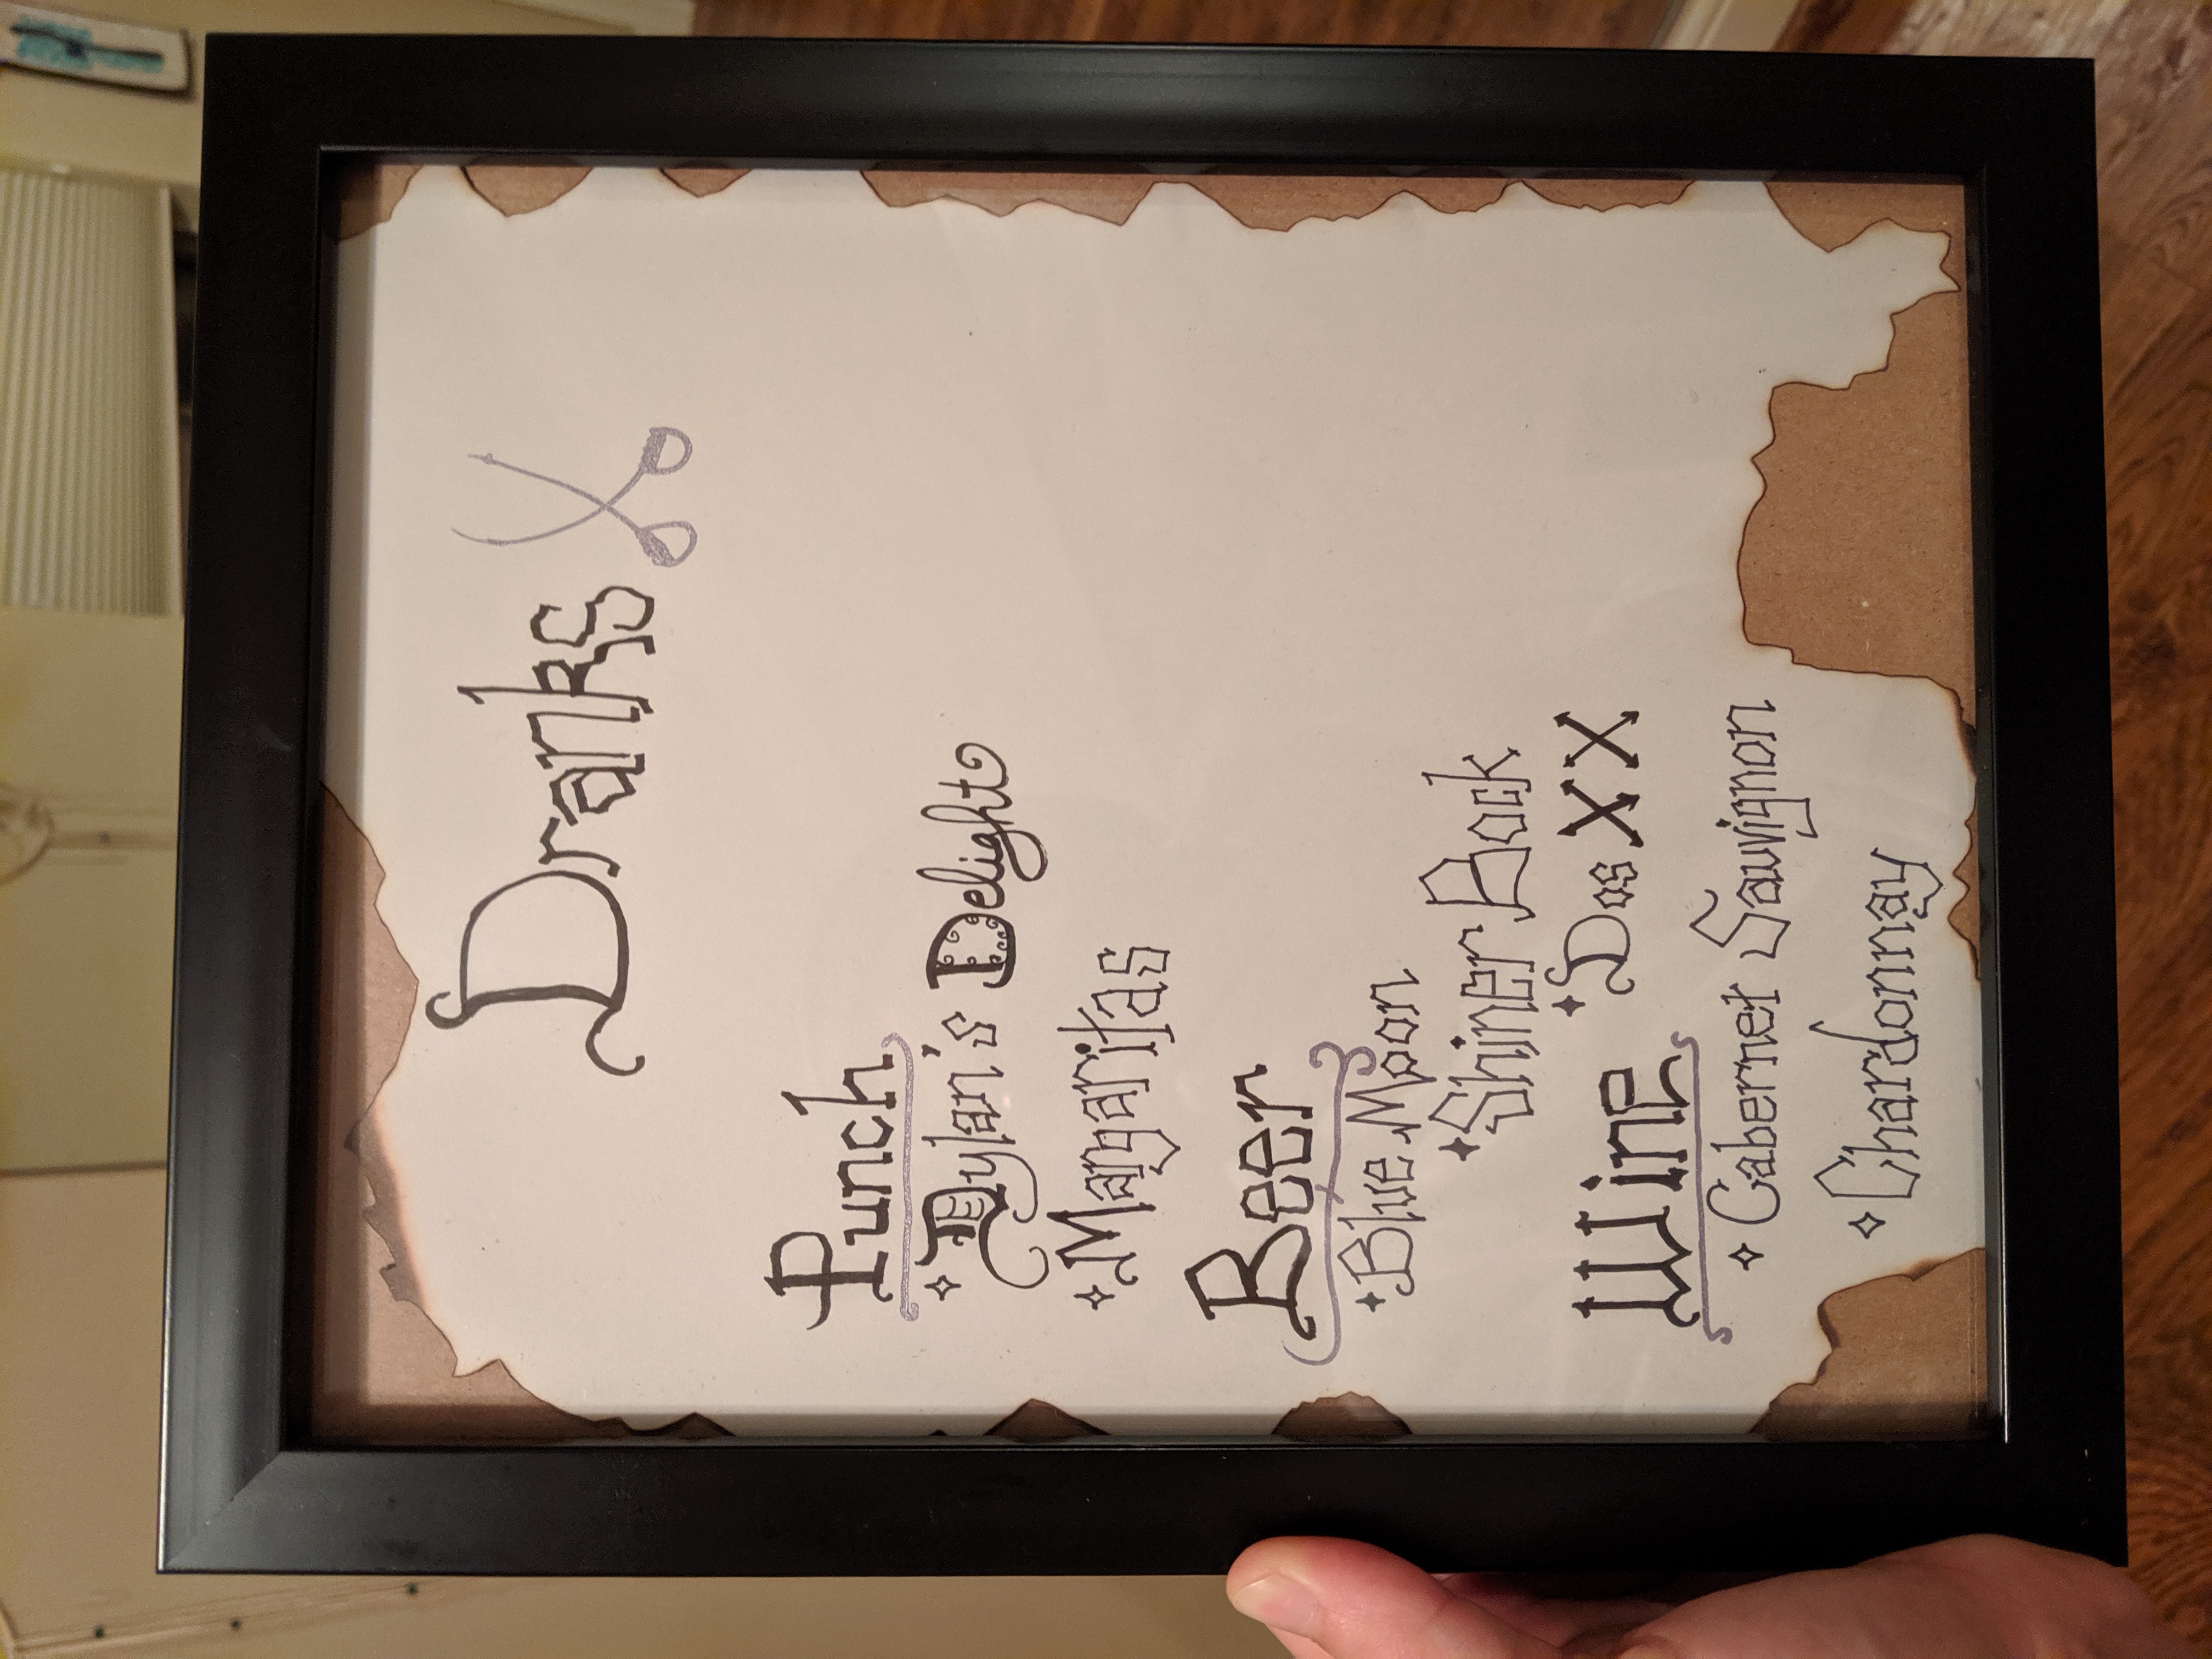 Dranks
Punch
Dylan's Delight
Margaritas
Beer
Blue Moon
Shiner Bock
Dos XX
Wine
Cabernet Sauvignon
Chardonnay